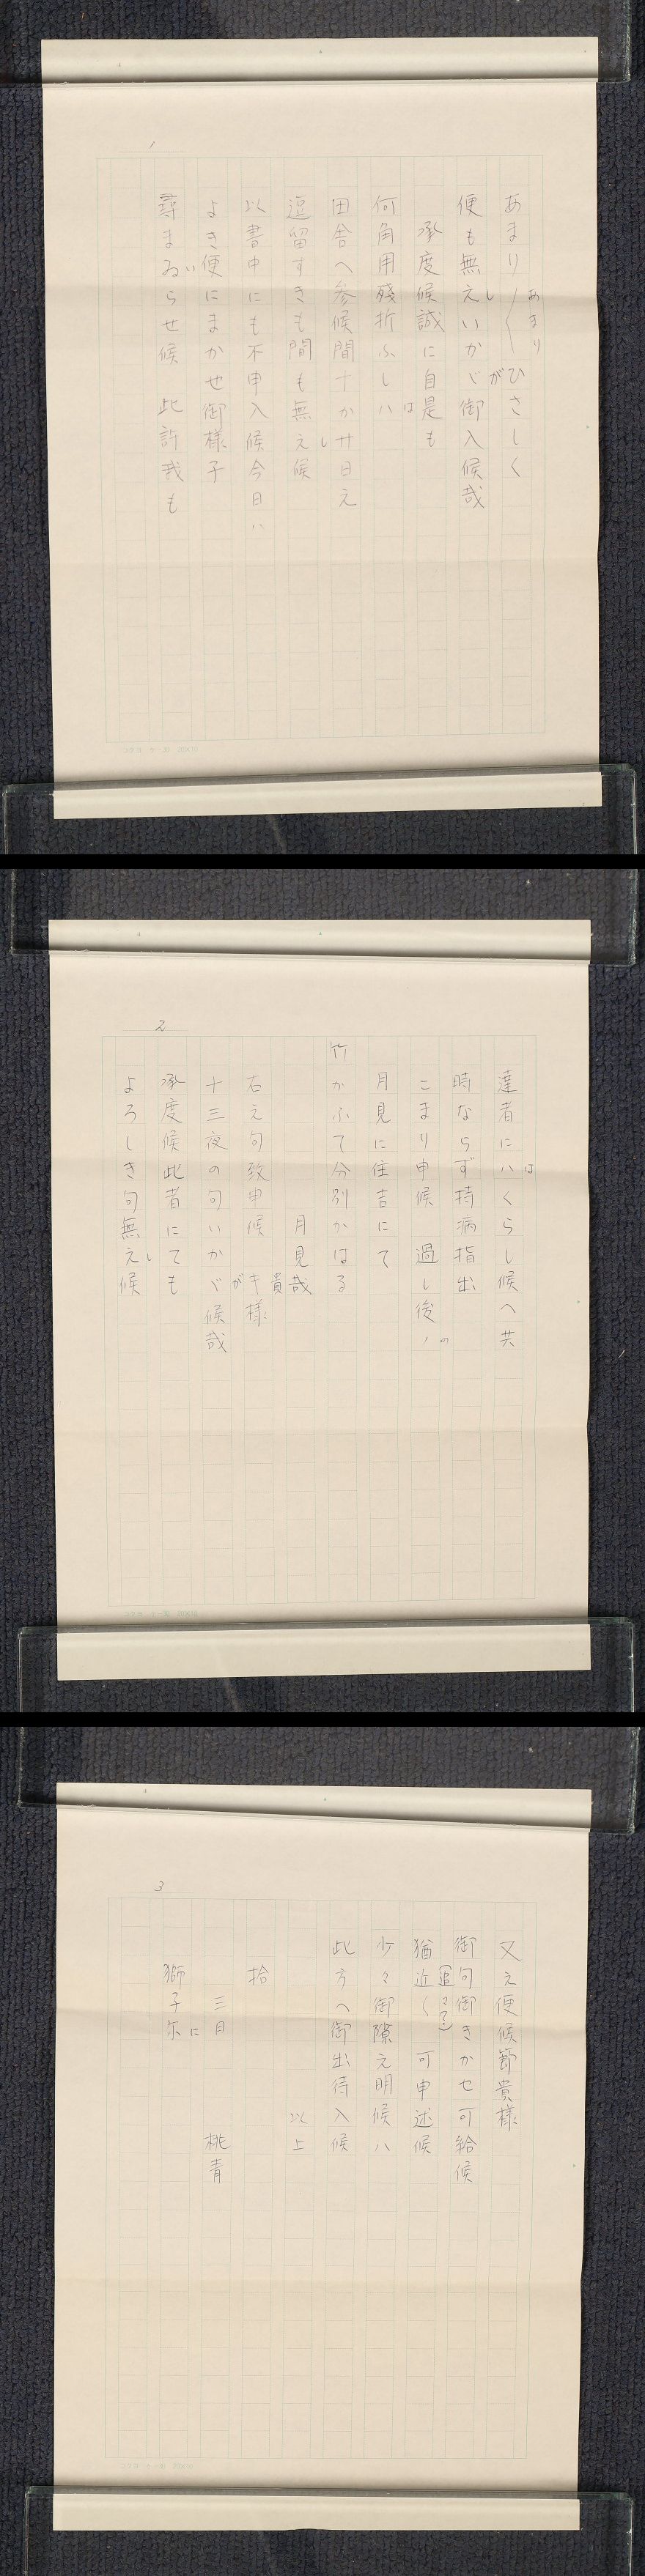 1
あまり〳〵ひさしく
あまり
便も無えいかゞ御入候哉
し
が
承度候誠に自是も
何角用残折ふしハ
は
田舎へ参候間十か廿日え
逗留すきも間も無え候
し
以書中にも不申入候今日ハ
よき便にまかせ御様子
尋まゐらせ候 此許我も
い
2
達者にハくらし候へ共
は
時ならず持病指出
こまり申候 過し後ノ
の
月見に住吉にて
竹かふて分別かはる
月見哉
右え句致申候 キ様
貴
十三夜の句いかゞ候哉
が
承度候此者にても
よろしき句無え候
し
3
又え便候節貴様
御句御きかせ可給候
猶近く 可申述候
(追々て)
少々御隙え明候ハ
此方へ御出待入候
以上
拾
三日
桃青
獅子尓
に